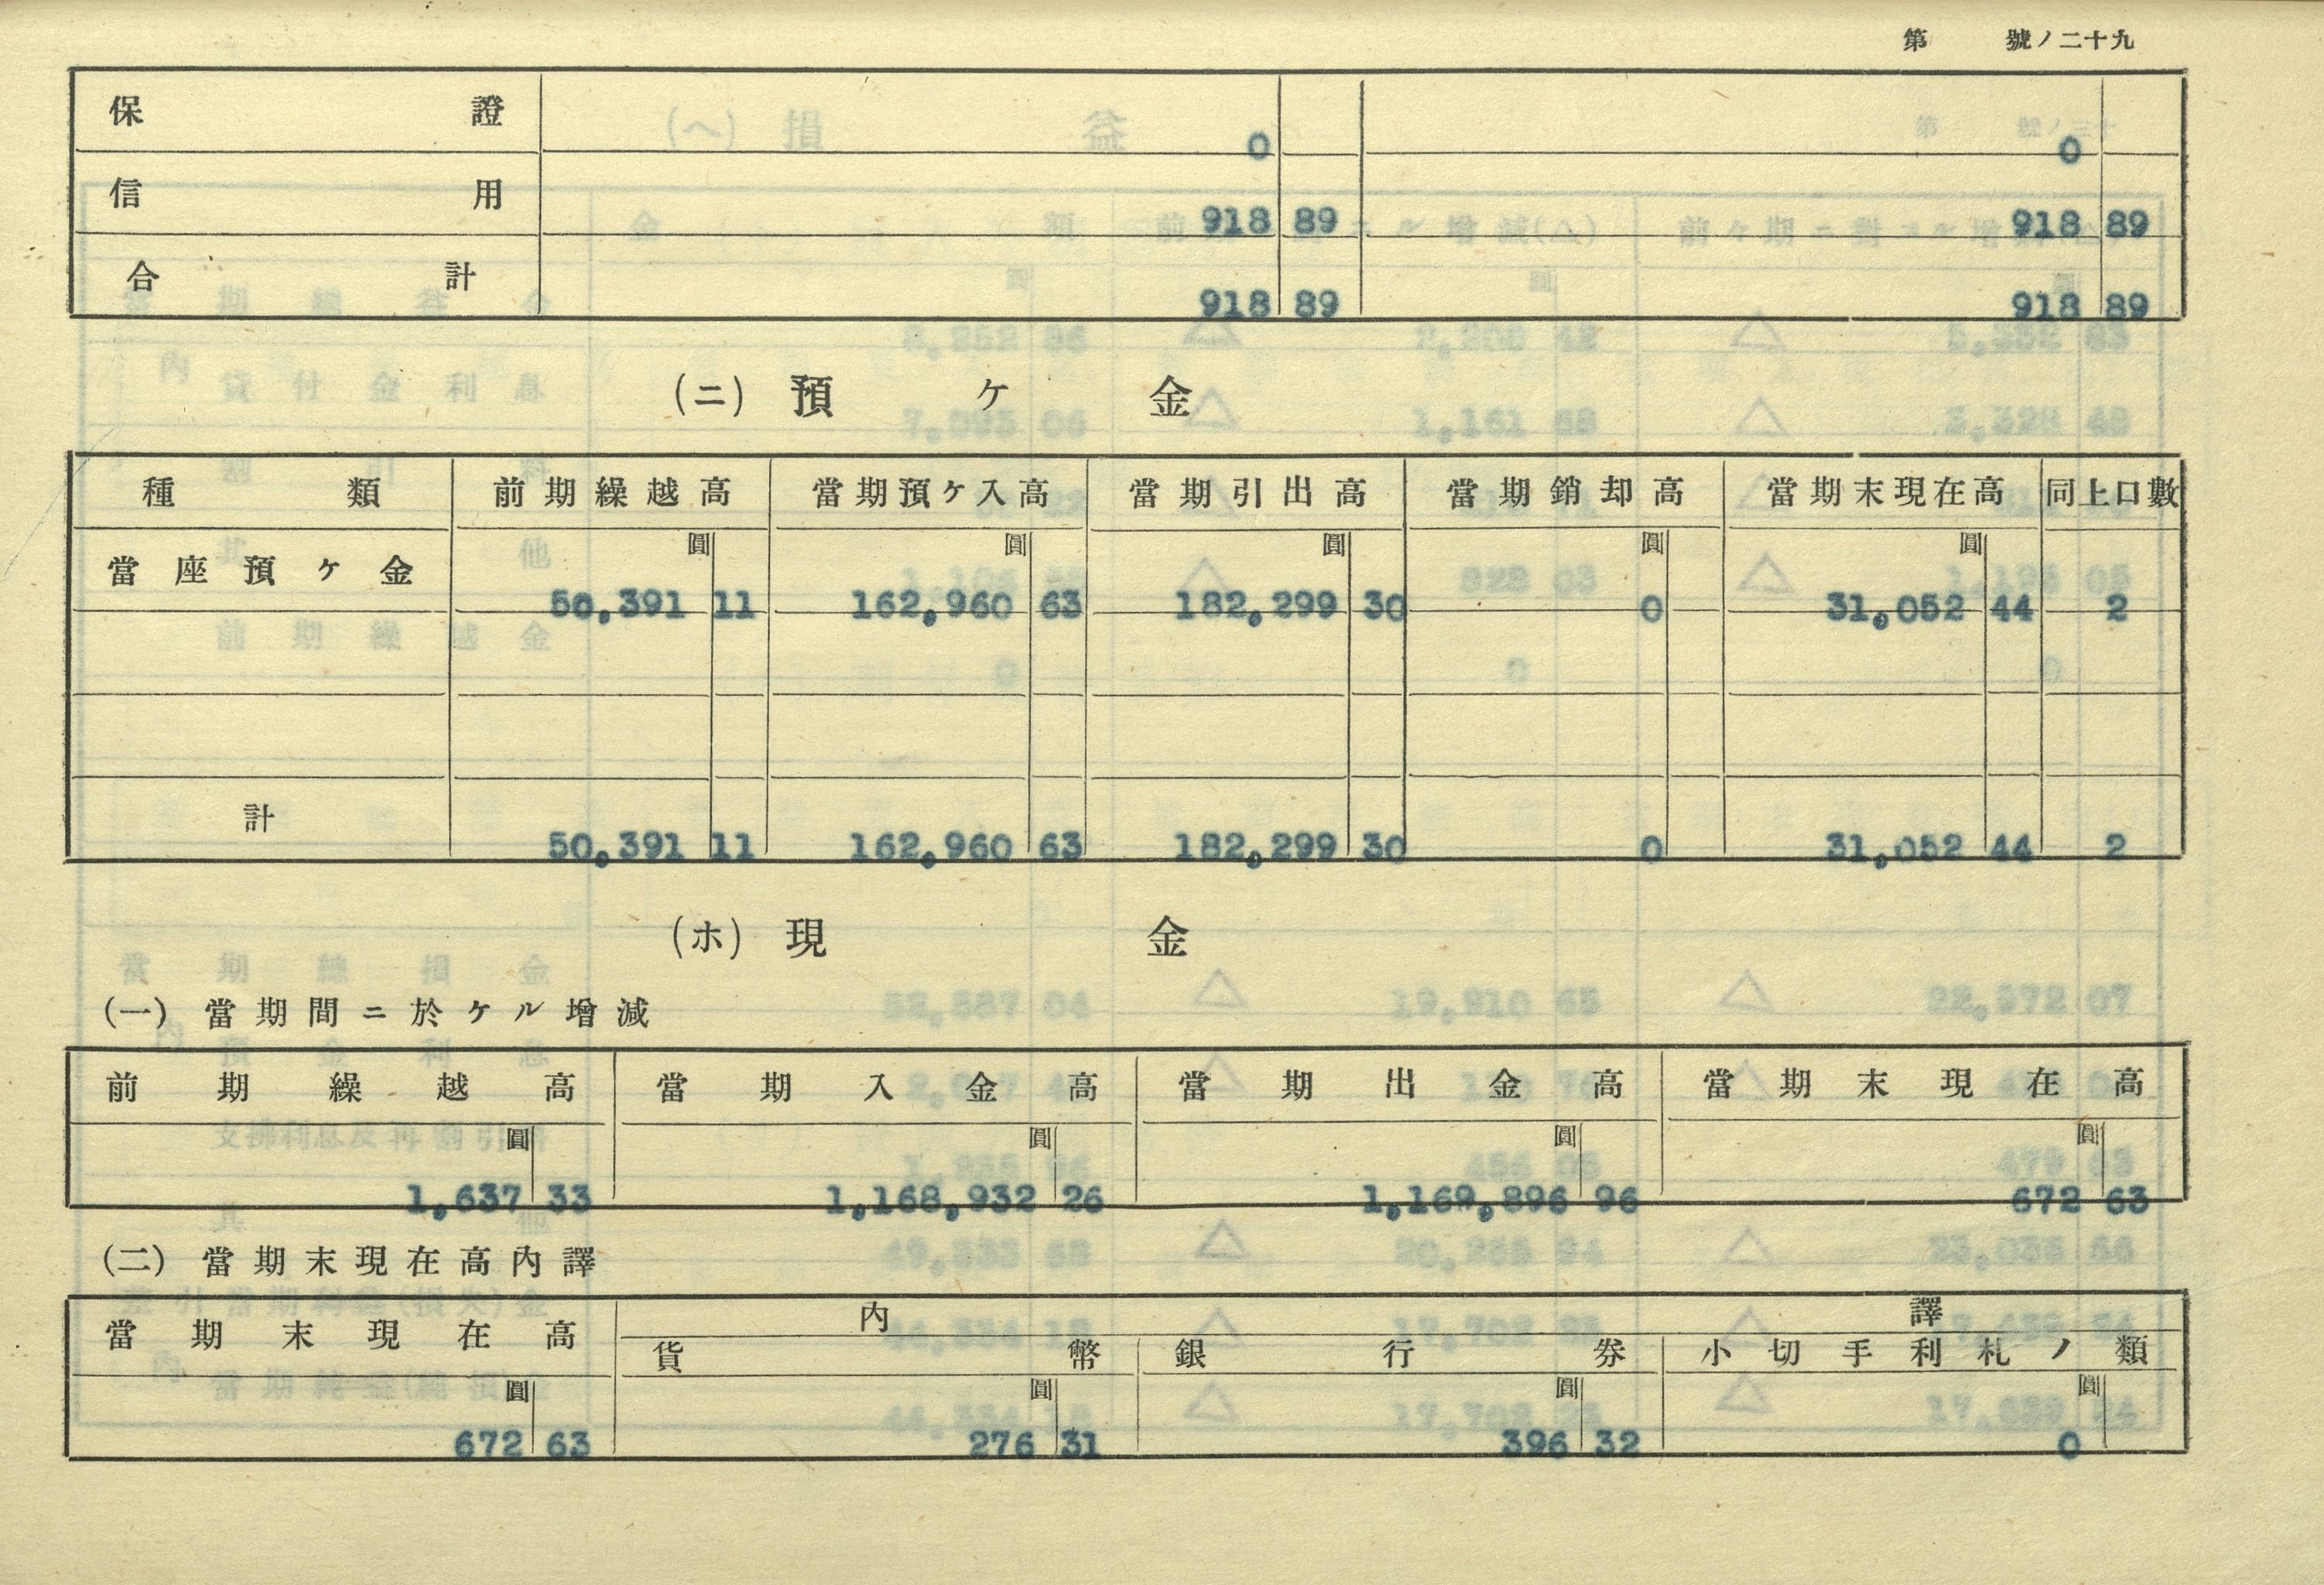 第 號ノ二十九
保證 0 0
信用 918 89 918 89
合計 918 89 918 89
(ニ) 預ケ金
種類 前期繰越高 當期預ケ入高 當期引出高 當期銷却高 當期末現在高 同上口數
圓 圓 圓 圓 圓
當座預ケ金 50,391 11 162,960 63 182,299 30 0 31,052 44 2
計 50,391 11 162,960 63 182,299 30 0 31,052 44 2
(ホ) 現金
(一) 當期間ニ於ケル增減
前期繰越高 當期入金高 當期出金高 當期末現在高
圓 圓 圓 圓
1,637 33 1,168,932 26 1,169,896 96 672 63
(二) 當期末現在高內譯
當期末現在高 內譯
貨幣 銀行券 小切手利札ノ類
圓 圓 圓 圓
672 63 276 31 396 32 0